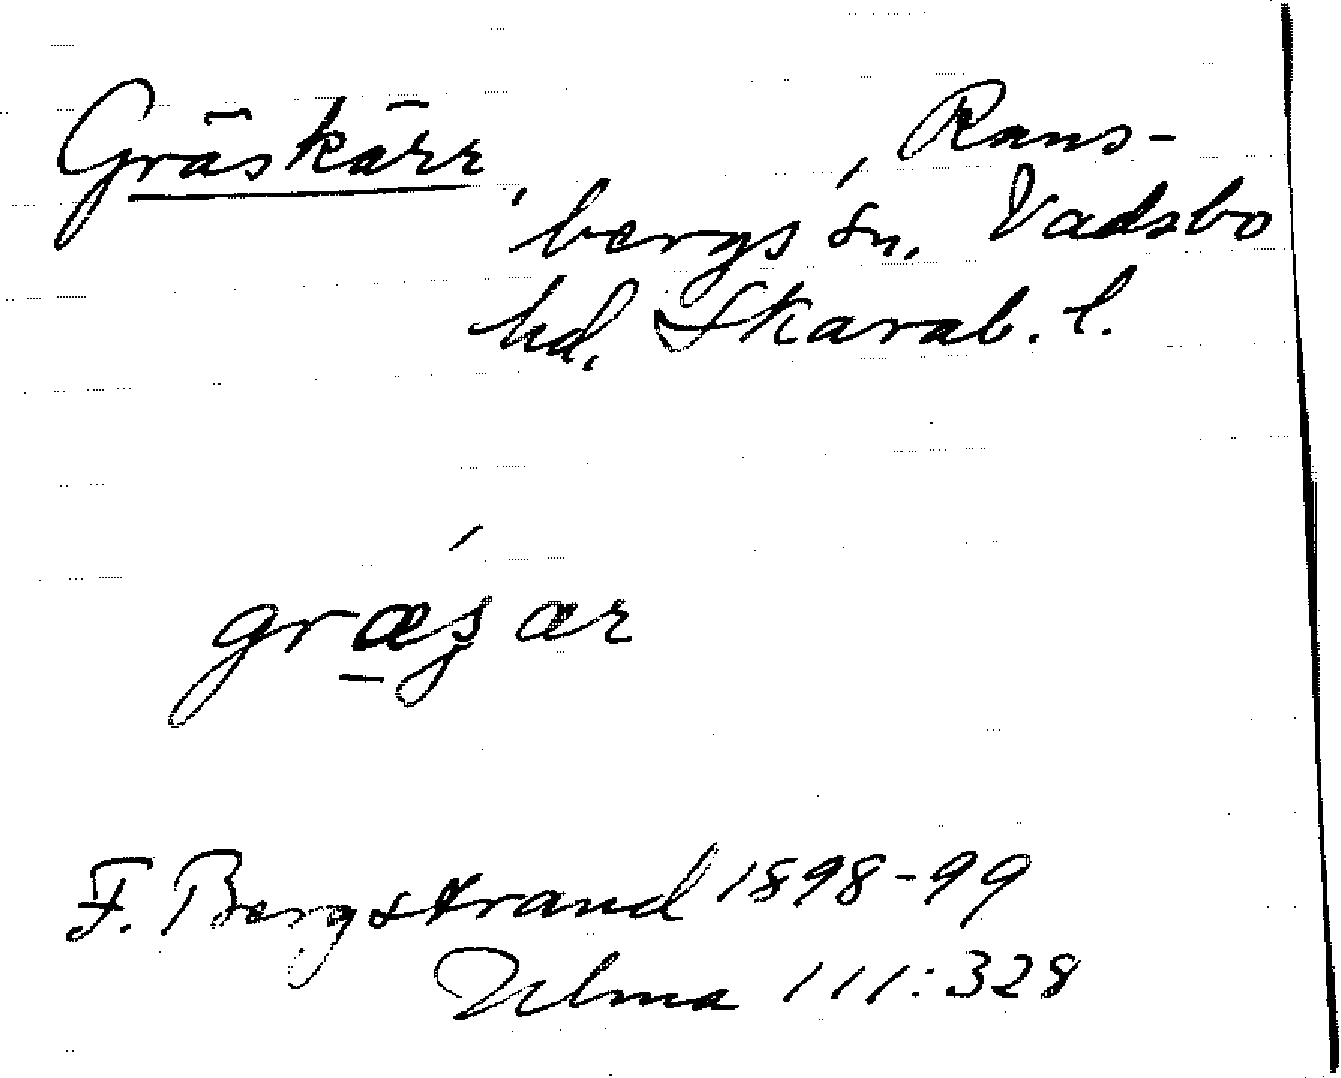 Gräskärr, Rans-
bergs sn, Vadsbo
hd, Skarab. l.
græsær
F. Bergstrand 1898-99
Ulma 111:328